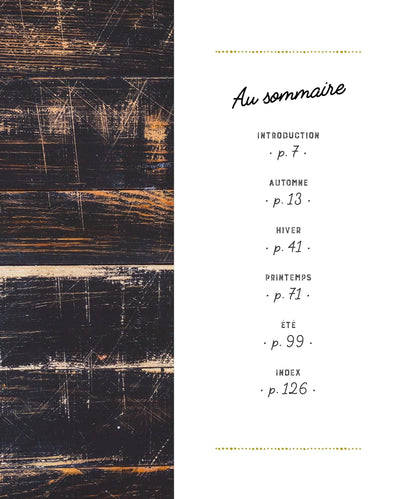 Au sommaire
INTRODUCTION
· p. 7 ·
AUTOMNE
· p. 13 ·
HIVER
· p. 41 ·
PRINTEMPS
· p. 71 ·
ÉTÉ
· p. 99 ·
INDEX
· p. 126 ·